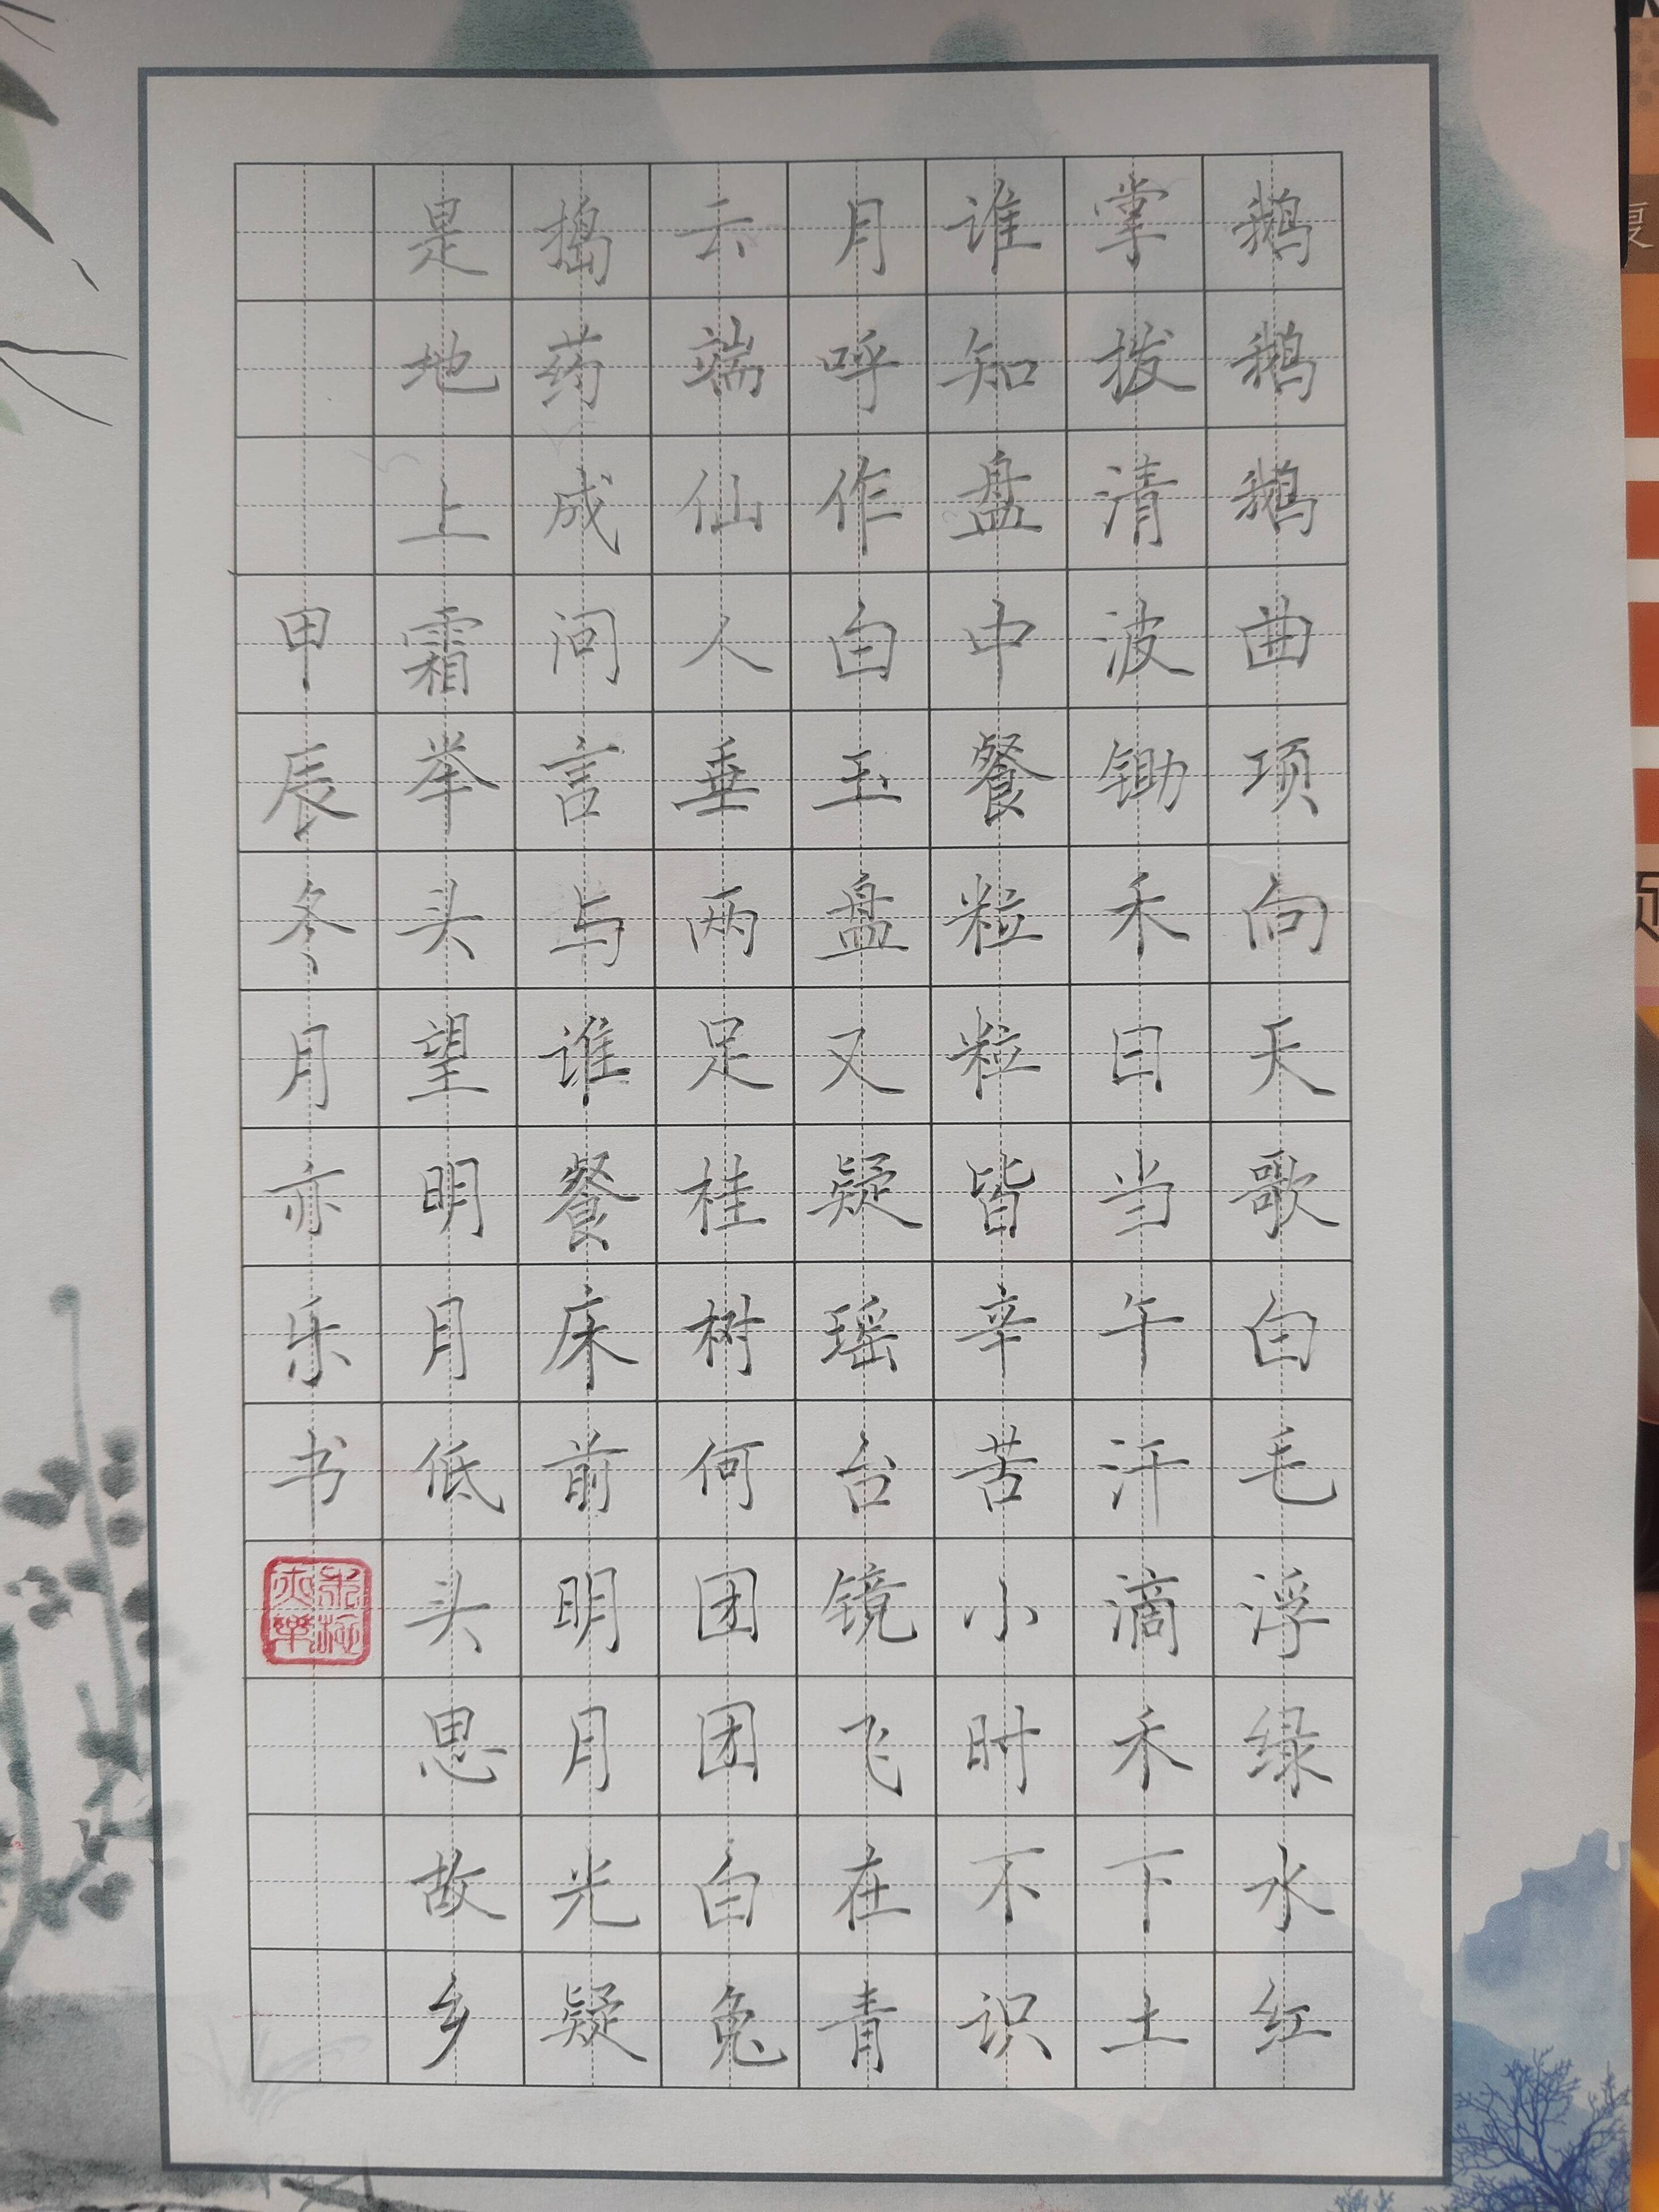 鹅鹅鹅曲项向天歌白毛浮绿水红
掌拨清波锄禾日当午汗滴禾下土
谁知盘中餐粒粒皆辛苦小时不识
月呼作白玉盘又疑瑶台镜飞在青
云端仙人垂两足桂树何团团白兔
捣药成问言与谁餐床前明月光疑
是地上霜举头望明月低头思故乡
甲辰冬月亦乐书